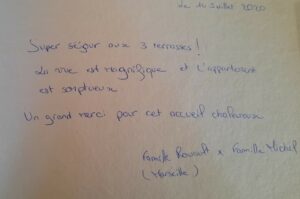 Le 14 Juillet 2020
Super séjour aux 3 terrasses!
La vue est magnifique et l'appartement
est somptueux
Un grand merci pour cet accueil chaleureux
Famille x Famille Michel
(Marseille)